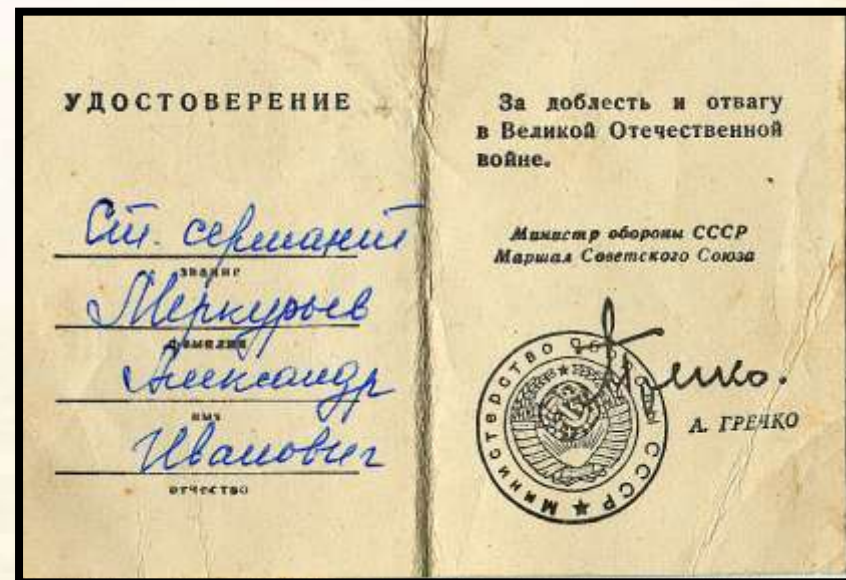 УДОСТОВЕРЕНИЕ
Ст. сержант
звание
Меркурьев
фамилия
Александр
имя
Иванович
отчество
За доблесть и отвагу
в Великой Отечественной
войне.
Министр обороны СССР
Маршал Советского Союза
Министерство Обороны СССР
А. ГРЕЧКО